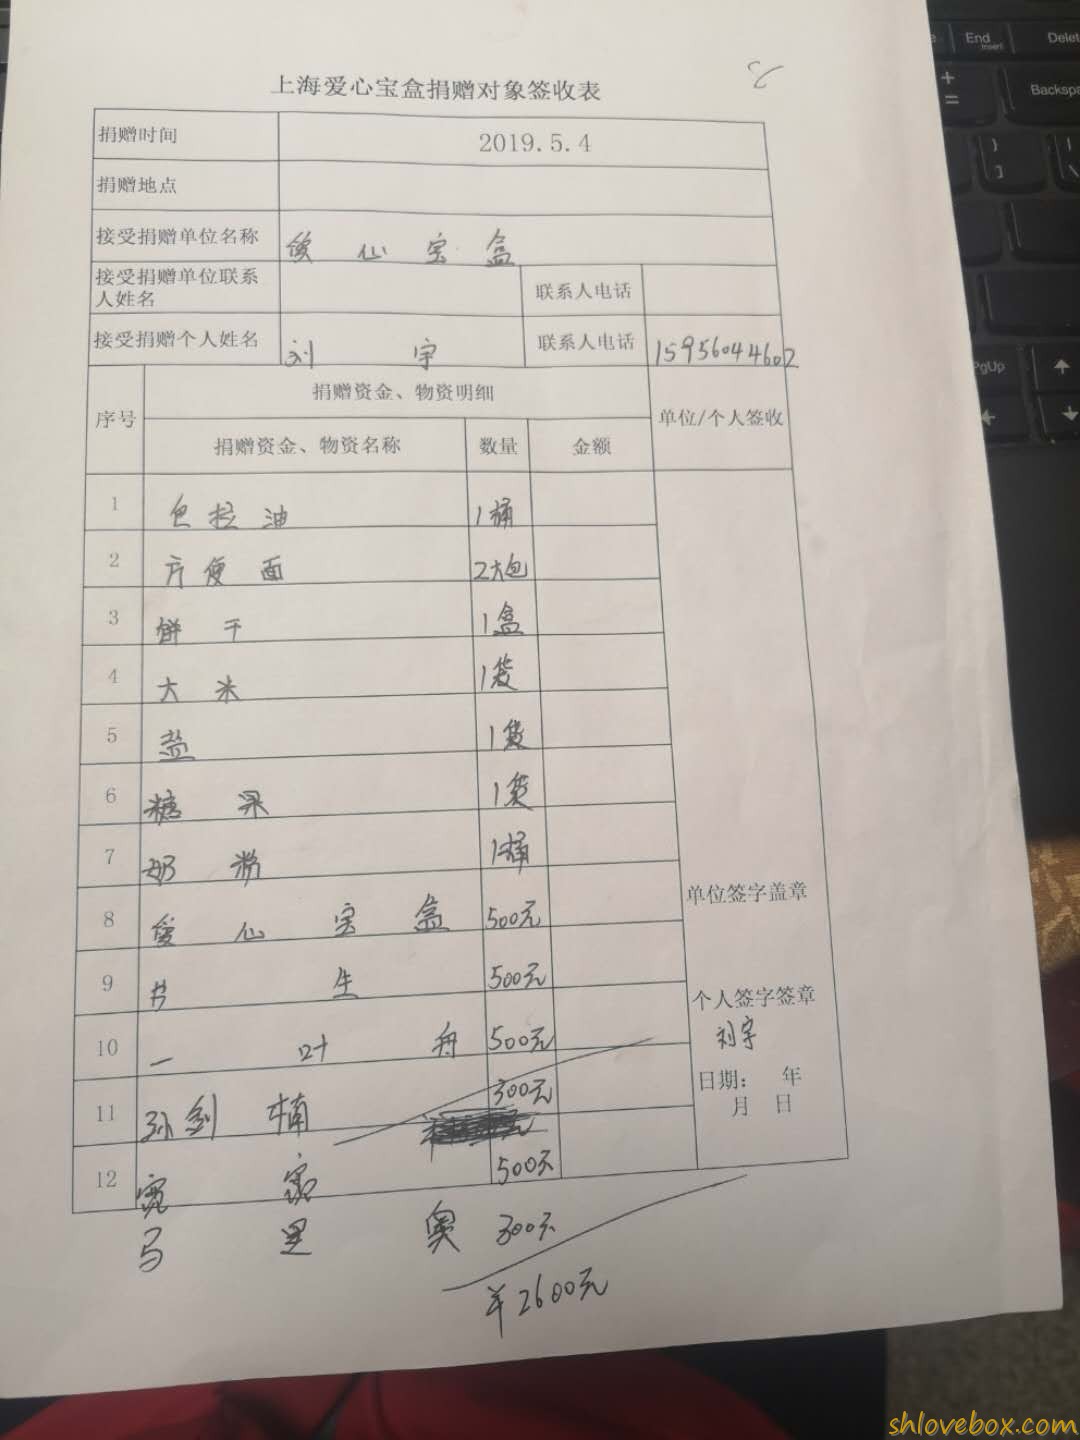 上海爱心宝盒捐赠对象签收表
捐赠时间 2019.5.4
捐赠地点
接受捐赠单位名称 爱心宝盒
接受捐赠单位联系人姓名 联系人电话
接受捐赠个人姓名 刘宇 联系人电话 15956044602
序号 捐赠资金、物资明细 单位/个人签收
捐赠资金、物资名称 数量 金额
1 色拉油 1桶
2 方便面 2大包
3 饼干 1盒
4 大米 1袋
5 盐 1袋
6 糖果 1袋
7 奶粉 1桶
8 爱心宝盒 500元
单位签字盖章
9 书生 500元
个人签字签章
刘宇
10 一叶舟 500元
日期： 年
月 日
11 孙剑楠 300元
12 宽宽 500元
马里奥 300元
¥2600元
End
Insert
Delete
Backspa
PgUp
shlovebox.com